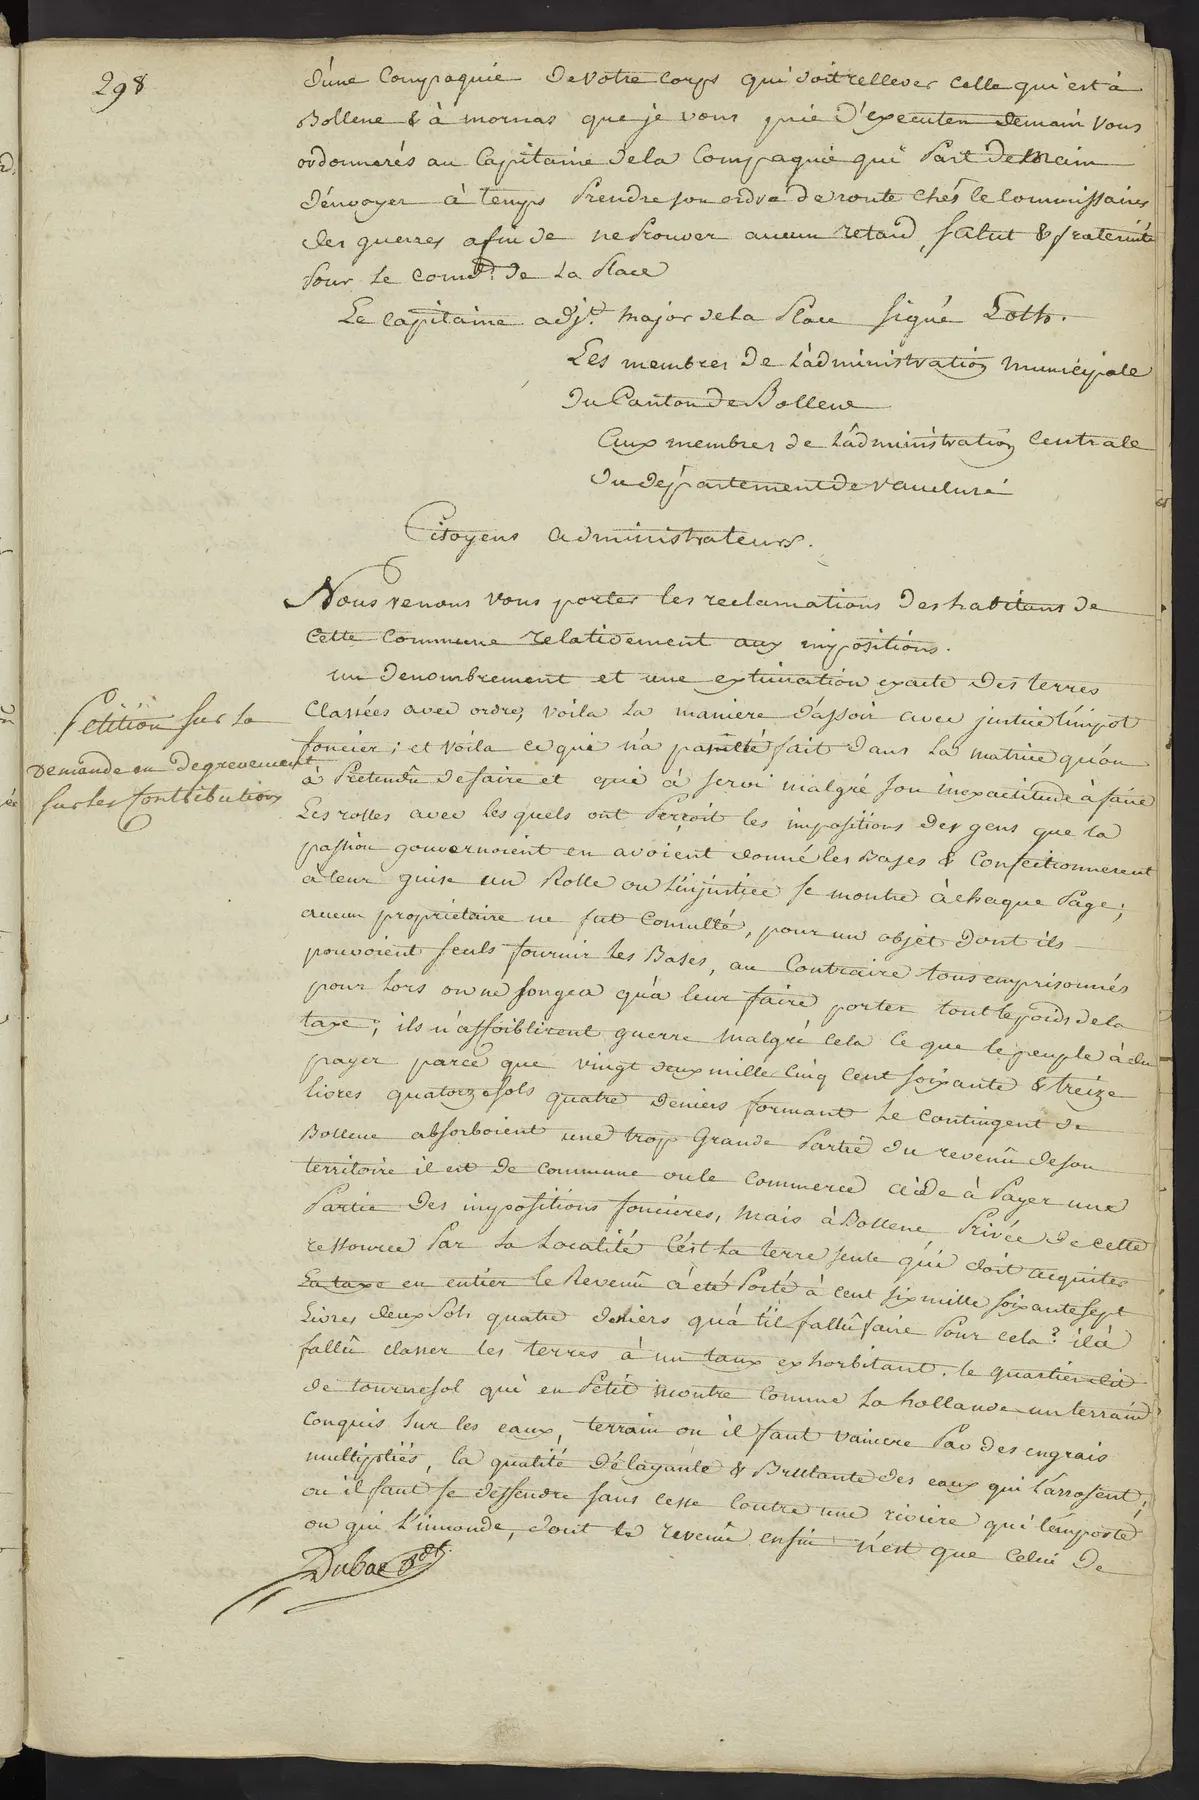 298
d'une Compagnie de votre corps qui doit rellever celle qui est à
Bollene & à mornas que je vous prie d'executer demain vous
ordonnerés au Capitaine de la Compagnie qui Part demain
d'envoyer à temps Prendre son ordre de route chés le Commissaires
des guerres afin de ne Prouver aucun retard, salut & fraternité
Pour le comd.t de La Place
Le capitaine adj.t major de La Place signé Goth.
Les membres de L'administration municipale
du Canton de Bollene
aux membres de L'administration Centrale
du departement de vaucluse
Citoyens administrateurs.
Nous venons vous porter les reclamations des habitans de
cette commune relativement aux impositions.
Petition sur la
Demande en Degrevement
sur les Contributions
un denombrement et une extimation exacte des terres
Classées avec ordre, voila La maniere d'assoir avec justice l'impot
foncier ; et voila ce qui n'a pas été fait dans La matrice qu'on
à Pretendû de faire et qui à servi malgré son inexactitude à faire
Les rolles avec lesquels ont Perçoit les impositions des gens que la
passion gouvernoient en avoient donné les Bases & Confectionnerent
à leur guise un Rolle ou L'injustice se montre à chaque Page ;
aucun propriétaire ne fut Consulté, pour un objet dont ils
pouvoient seuls fournir les Bases, au Contraire tous emprisonnés
pour Lors on ne songea qu'a leur faire porter tout le poids de la
taxe ; ils n'affoiblirent guerre malgré cela ce que le peuple à du
payer parce que vingt deux mille Cinq Cent soixante & treize
livres quatorze sols quatre deniers formant Le Contingent de
Bollene absorboient une trop Grande Partie du revenû de son
territoire il est de commune ou le Commerce aide à Payer une
Partie des impositions foncieres, mais à Bollene Privée de cette
ressource Par La Localité C'est La terre seule qui doit acquiter
La taxe en entier le Revenû à été Porté à Cent six mille soixante sept
Livres deux sols quatre deniers qu'a t'il fallû faire Pour cela ? il a
fallû classer les terres à un taux exhorbitant. le quartier dit
de tournesol qui en Petit montre Comme La hollande un terrain
conquis sur les eaux, terrain ou il faut vaincre Par des engrais
multipliés, la qualité Délayante & Brulante des eaux qui L'arrosent ;
ou il faut se deffendre sans cesse Contre une riviere qui l'emporte
ou qui L'innonde, dont le revenû enfin n'est que Celui de
Dubac